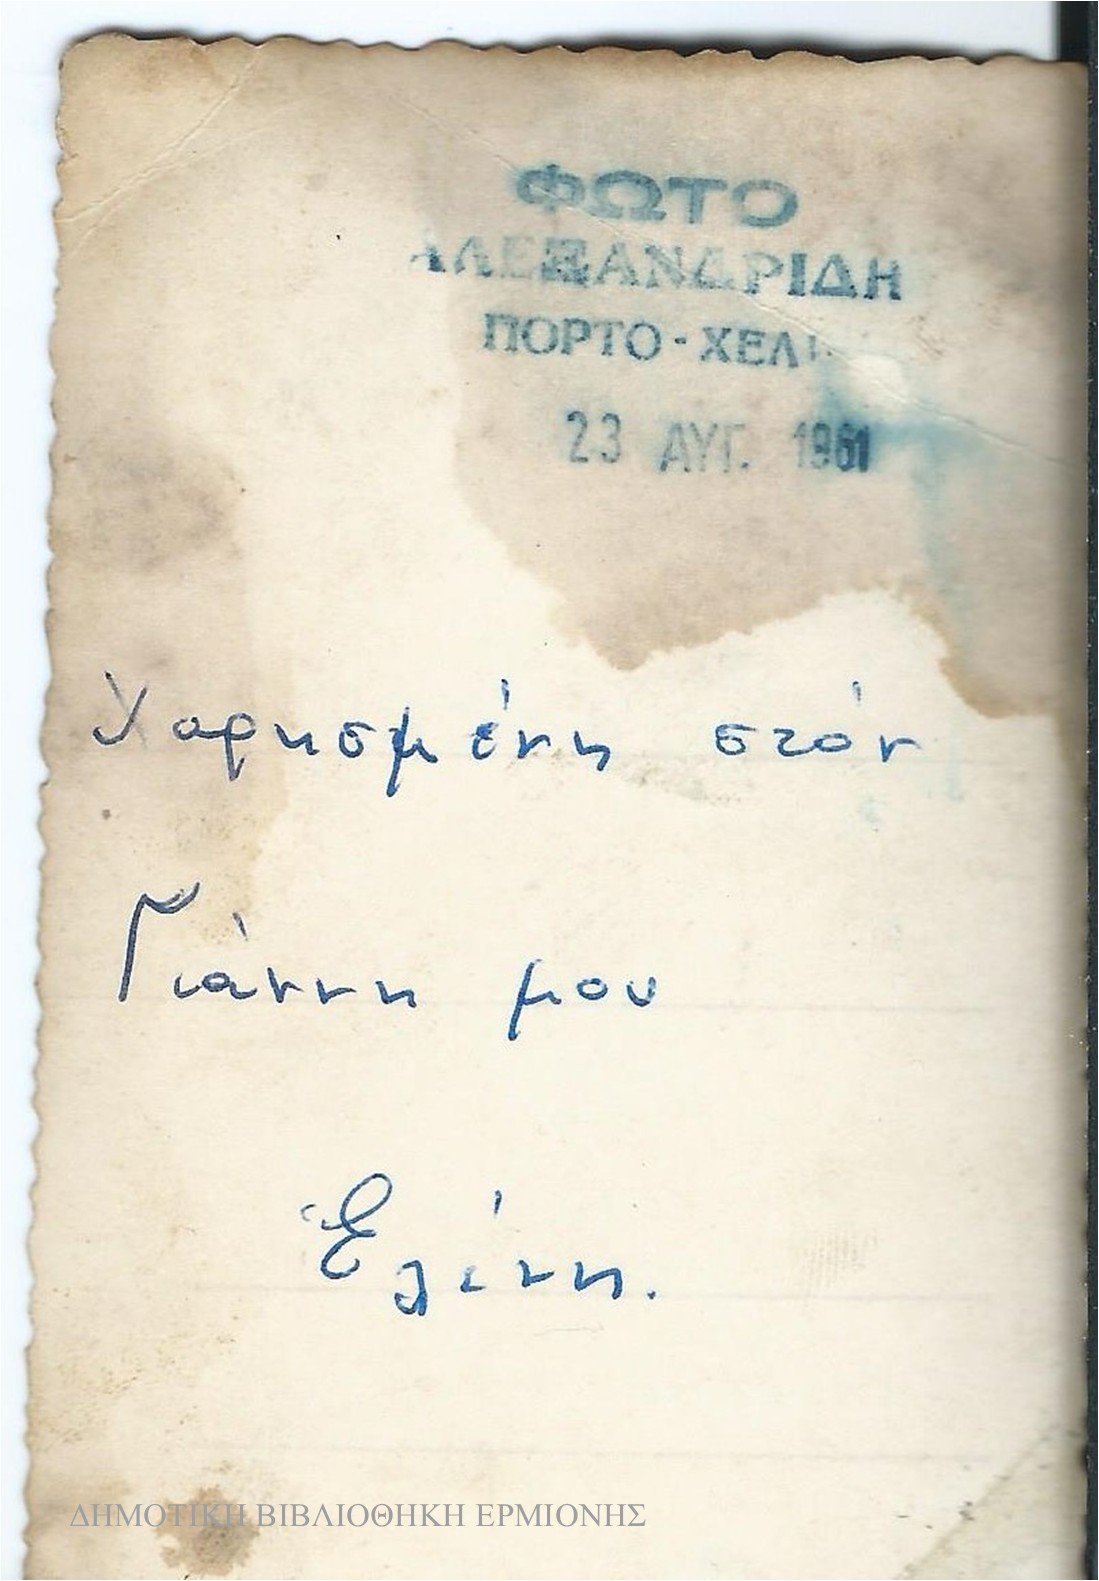 ΦΩΤΟ
ΑΛΕΞΑΝΔΡΙΔΗ
ΠΟΡΤΟ - ΧΕΛΙ
23 ΑΥΓ. 1961
Χαρησμένη στόν
Γιάννη μου
Ἑλένη.
ΔΗΜΟΤΙΚΗ ΒΙΒΛΙΟΘΗΚΗ ΕΡΜΙΟΝΗΣ